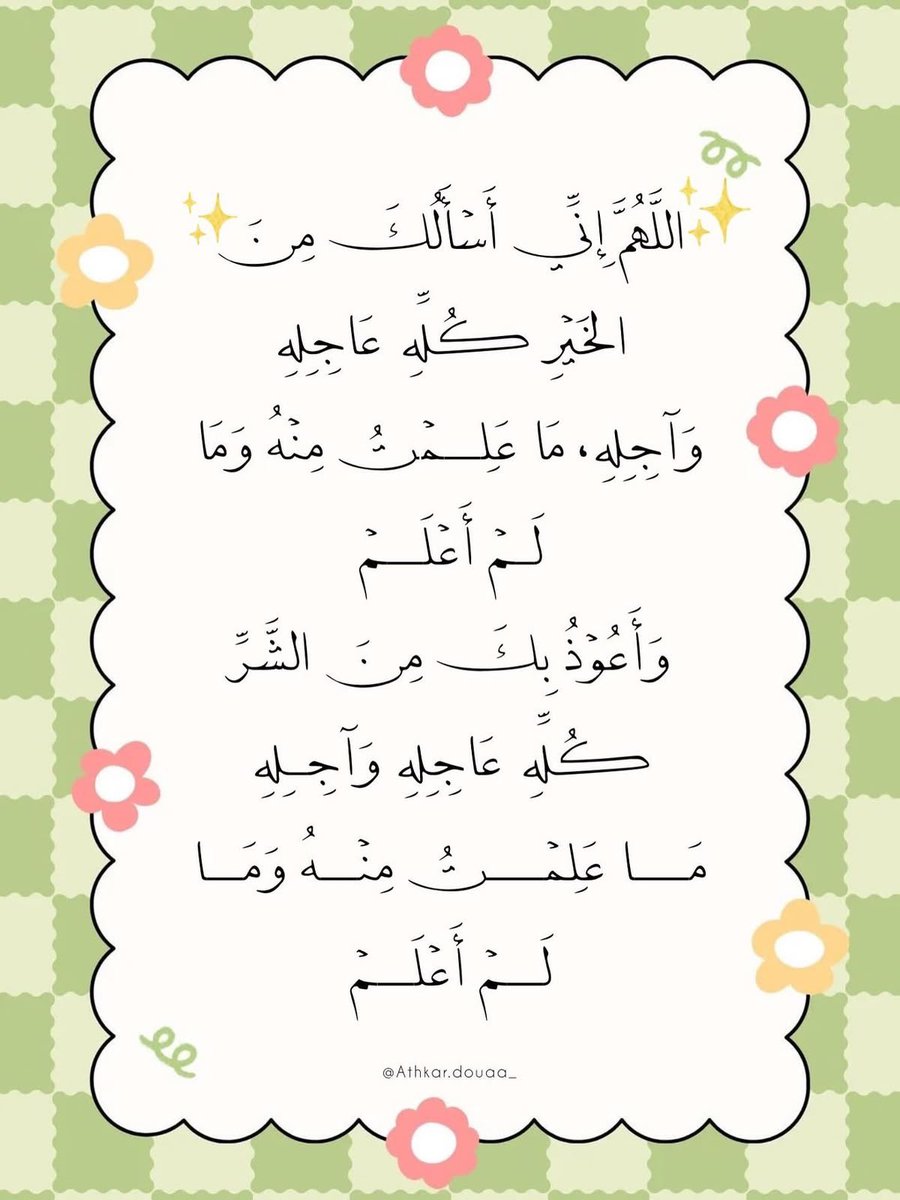 اللَّهُمَّ إِنِّي أَسْأَلُكَ مِنَ
الخَيْرِ كُلِّهِ عَاجِلِهِ
وَآجِلِهِ، مَا عَلِمْتُ مِنْهُ وَمَا
لَمْ أَعْلَمْ
وَأَعُوْذُ بِكَ مِنَ الشَّرِّ
كُلِّهِ عَاجِلِهِ وَآجِلِهِ
مَا عَلِمْتُ مِنْهُ وَمَا
لَمْ أَعْلَمْ
@Athkar.douaa_